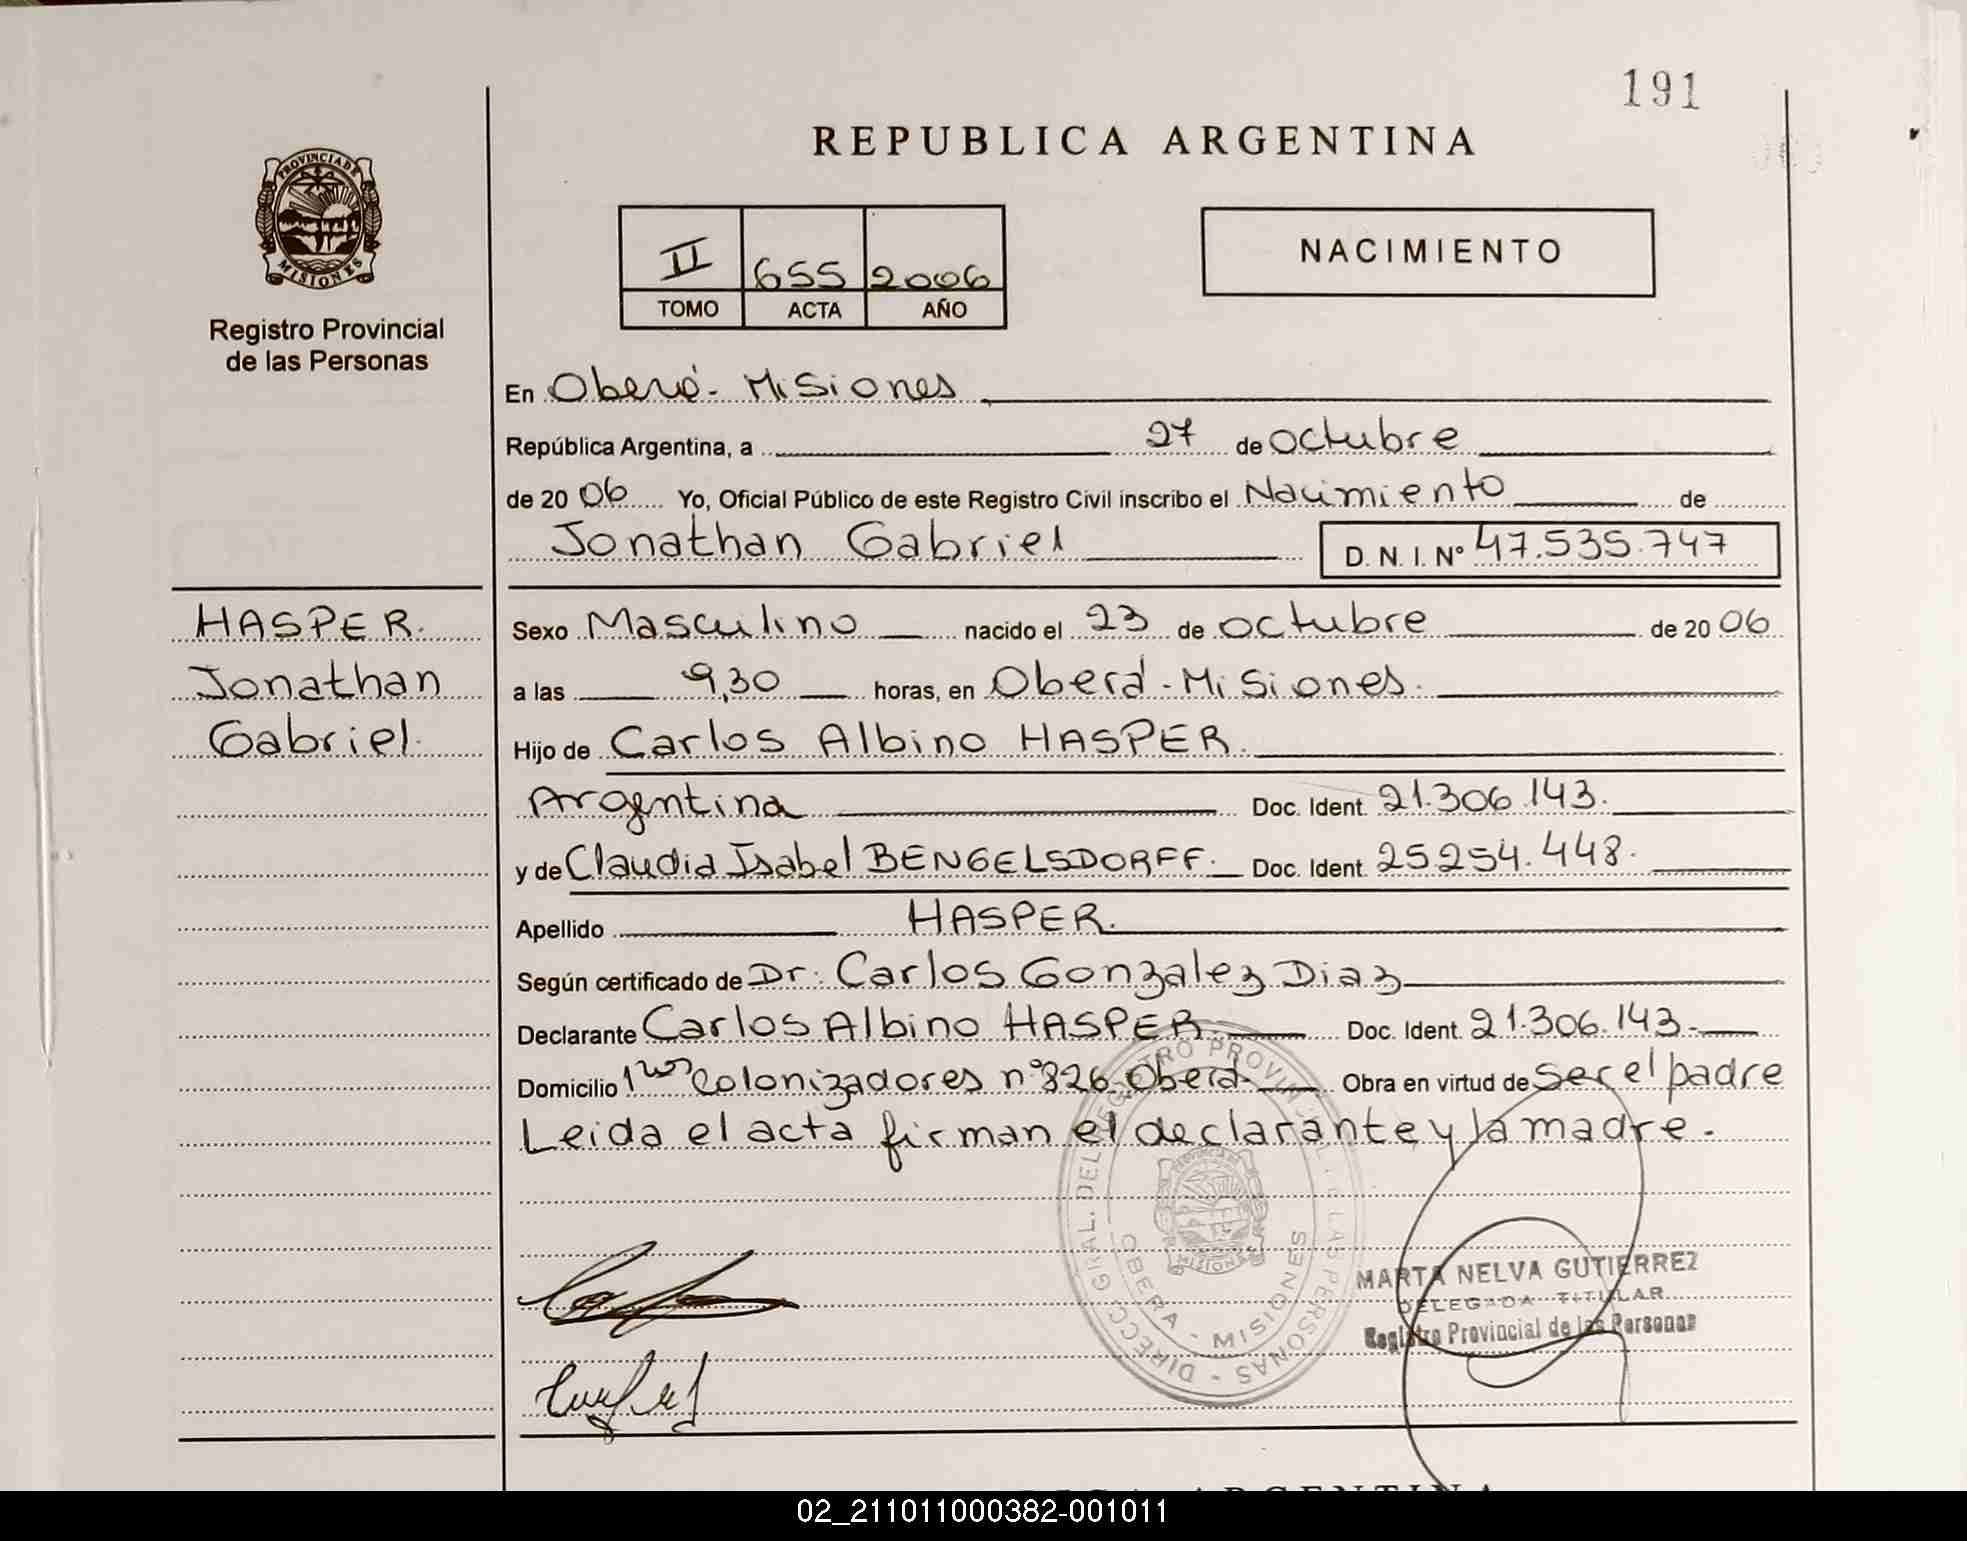 191
REPUBLICA ARGENTINA
PROVINCIA DE
MISIONES
Registro Provincial
de las Personas
II 655 2006
TOMO ACTA AÑO
NACIMIENTO
En Oberá - Misiones
República Argentina, a 27 de octubre
de 20 06 Yo, Oficial Público de este Registro Civil inscribo el Nacimiento de
Jonathan Gabriel D. N. I. Nº 47.535.747
HASPER.
Jonathan
Gabriel.
Sexo Masculino nacido el 23 de octubre de 20 06
a las 9,30 horas, en Oberá - Misiones.
Hijo de Carlos Albino HASPER.
Argentina Doc. Ident. 21.306.143.
y de Claudia Isabel BENGELSDORFF. Doc. Ident. 25.254.448.
Apellido HASPER.
Según certificado de Dr. Carlos Gonzalez Diaz
Declarante Carlos Albino HASPER. Doc. Ident. 21.306.143.
Domicilio 1ros Colonizadores nº 826, Oberá. Obra en virtud de ser el padre
Leida el acta firman el declarante y la madre.
DIRECC. GRAL. DEL REGISTRO PROVINCIAL DE LAS PERSONAS -
OBERA - MISIONES
PROVINCIA DE
MISIONES
MARTA NELVA GUTIERREZ
DELEGADA TITULAR
Registro Provincial de las Personas
ARGENTINA
02_211011000382-001011